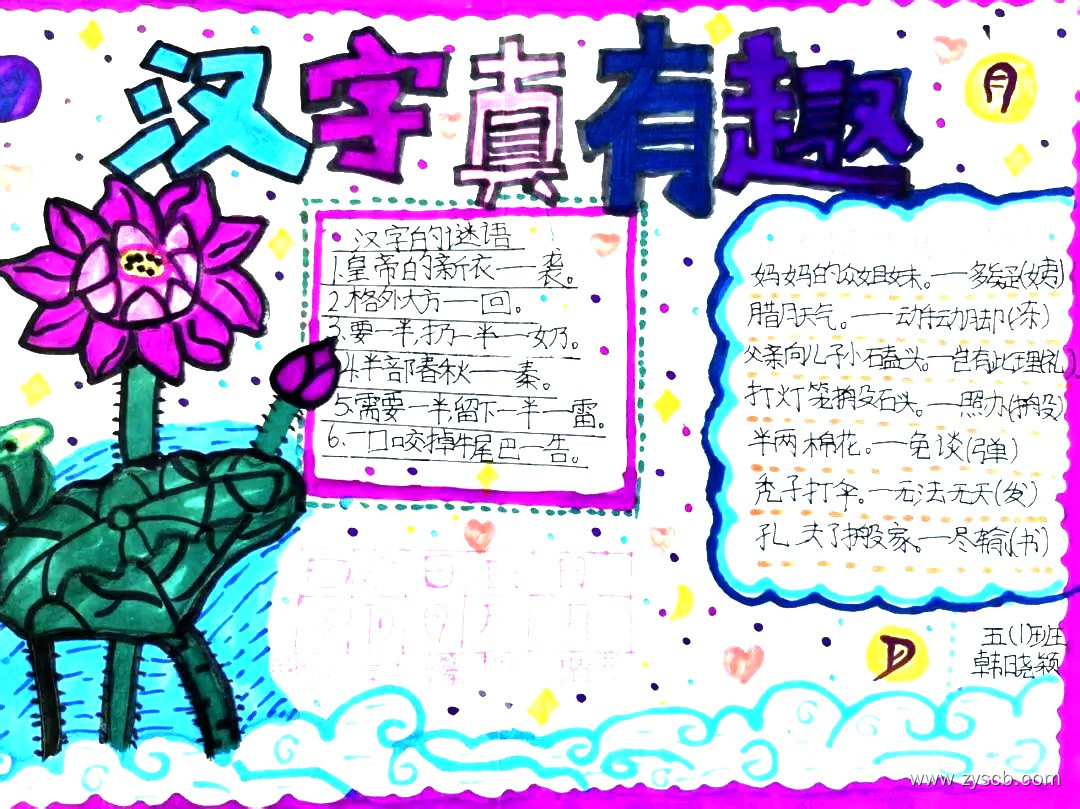 汉字真有趣
月
汉字的谜语
1.皇帝的新衣——袭。
2.格外大方——回。
3.要一半,扔一半——奶。
4.半部春秋——秦。
5.需要一半,留下一半——雷。
6.一口咬掉牛尾巴——告。
妈妈的众姐妹。——多疑(姨)
腊月天气。——动手动脚(冻)
父亲向儿子小石磕头。——岂有此理(礼)
打灯笼搬石头。——照办(搬)
半两棉花。——免谈(弹)
秃子打伞。——无法无天(发)
孔夫子搬家。——尽输(书)
五(1)班
韩晓颖
www.zyscb.com